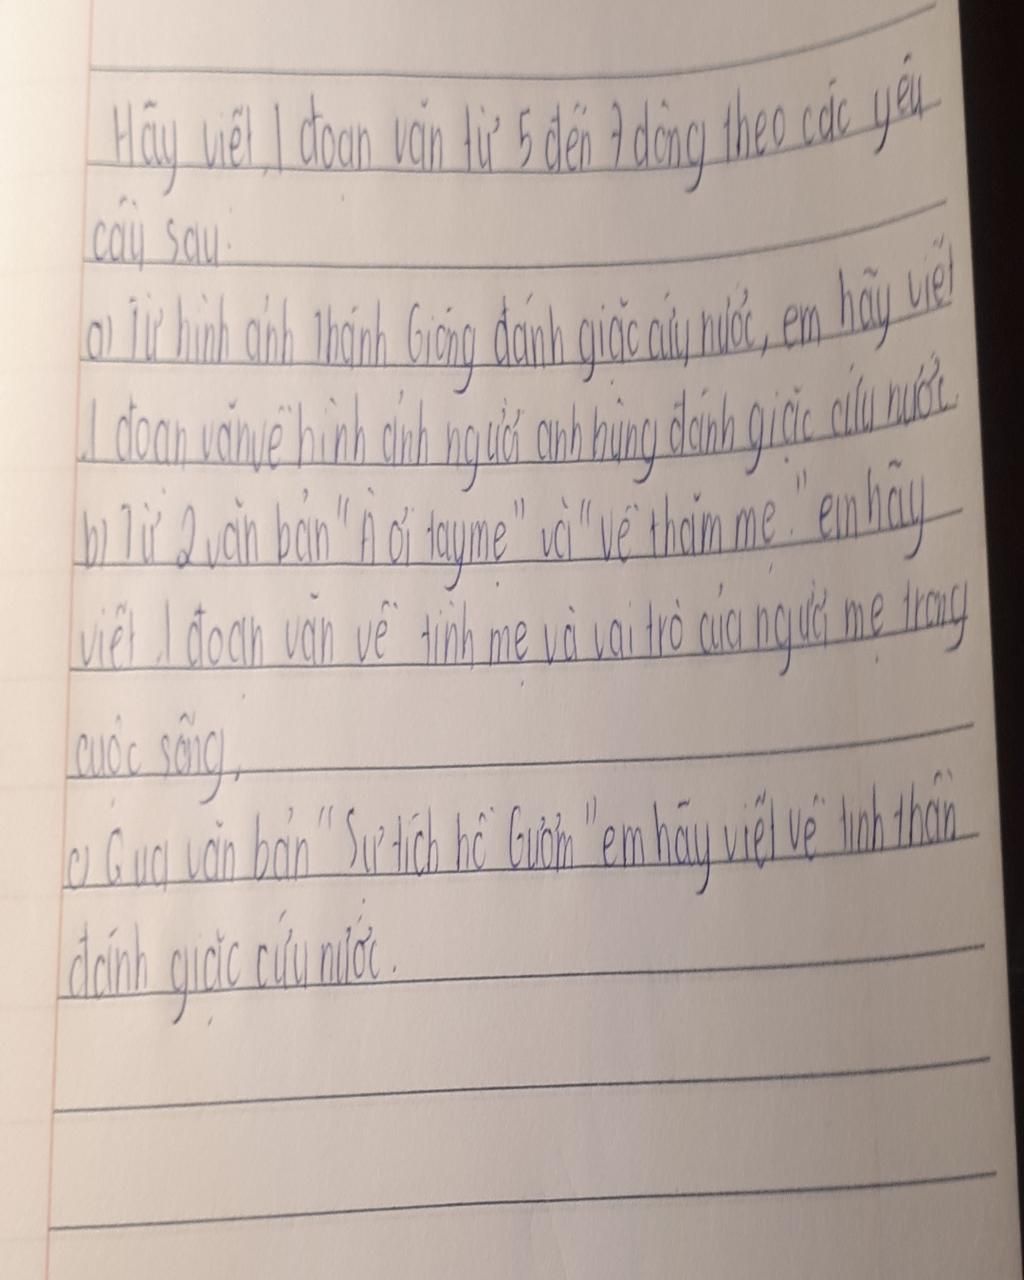 Hãy viết 1 đoạn văn từ 5 đến 7 dòng theo các yêu
cầu sau:
a) Từ hình ảnh Thánh Gióng đánh giặc cứu nước, em hãy viết
1 đoạn văn về hình ảnh người anh hùng đánh giặc cứu nước.
b) Từ 2 văn bản "À ơi tay mẹ" và "về thăm mẹ." em hãy
viết 1 đoạn văn về tình mẹ và vai trò của người mẹ trong
cuộc sống,
c) Qua văn bản "Sự tích hồ Gươm" em hãy viết về tinh thần
đánh giặc cứu nước.